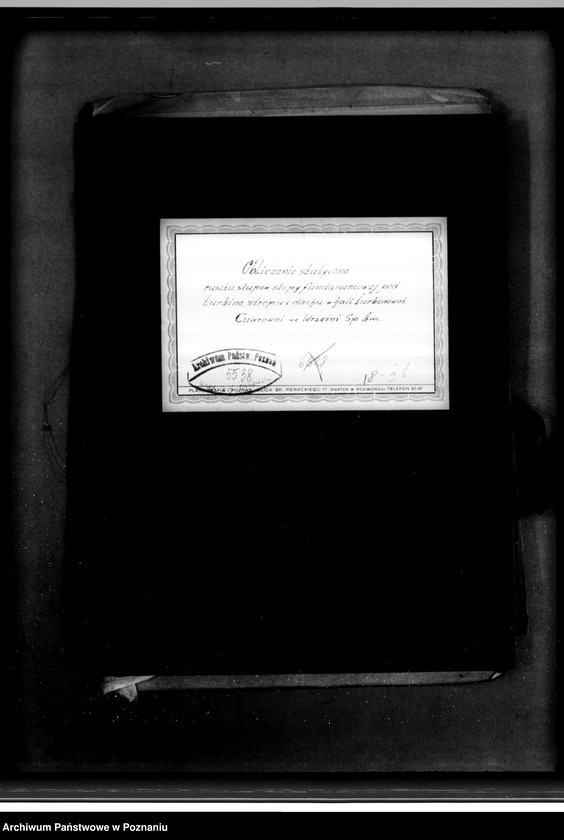 Obliczenie statyczne
rusztu, słupów stopy fundamentowej pod
turbinę, stropu i dachu w hali turbinowni
Cukrowni we Wrześni Sp. Akc.
Archiwum Państw. Poznań
5538
18-
BR. PIERACKIEGO 11 (PARTER W PODWÓRZU) TELEFON
Archiwum Państwowe w Poznaniu